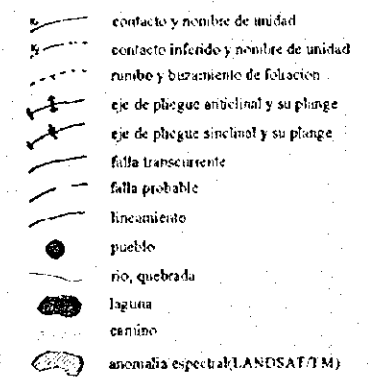 contacto y nombre de unidad
contacto inferido y nombre de unidad
rumbo y buzamiento de foliacion
eje de pliegue anticlinal y su plange
eje de pliegue sinclinal y su plange
falla transcurrente
falla probable
lineamiento
pueblo
rio, quebrada
laguna
camino
anomalia espectral(LANDSAT/TM)